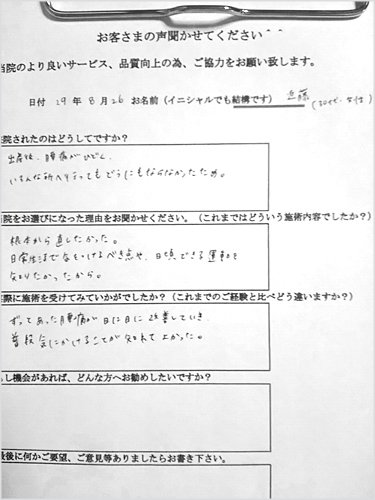 お客さまの声聞かせてください^^
当院のより良いサービス、品質向上の為、ご協力をお願い致します。
日付 29年 8月 26 お名前(イニシャルでも結構です) 近藤(30代・女性)
院されたのはどうしてですか?
出産後、腰痛がひどく、
いろんな所へ行ってもどうにもならなかったため。
当院をお選びになった理由をお聞かせください。(これまではどういう施術内容でしたか?)
根本から直したかった。
日常生活で気をつけるべき点や、日頃できる運動を
知りたかったから。
際に施術を受けてみていかがでしたか?(これまでのご経験と比べどう違いますか?)
ずっとあった腰痛が日に日に改善していき、
普段気にかけることが知れて よかった。
もし機会があれば、どんな方へお勧めしたいですか?
最後に何かご要望、ご意見等ありましたらお書き下さい。